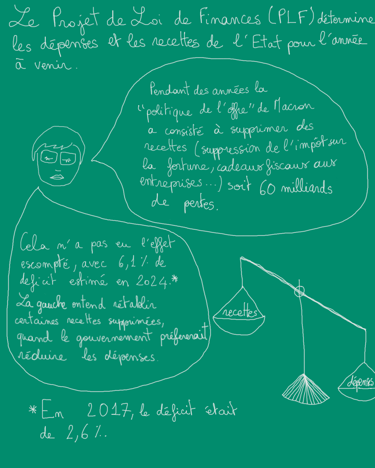 Le Projet de Loi de Finances (PLF) détermine
les dépenses et les recettes de l'Etat pour l'année
à venir.
Pendant des années la
"politique de l'offre" de Macron
a consisté à supprimer des
recettes (suppression de l'impôt sur
la fortune, cadeaux fiscaux aux
entreprises...) soit 60 milliards
de pertes.
Cela n'a pas eu l'effet
escompté, avec 6,1% de
déficit estimé en 2024.*
La gauche entend rétablir
certaines recettes supprimées,
quand le gouvernement préfèrerait
réduire les dépenses.
recettes
dépenses
*En 2017, le déficit était
de 2,6%.